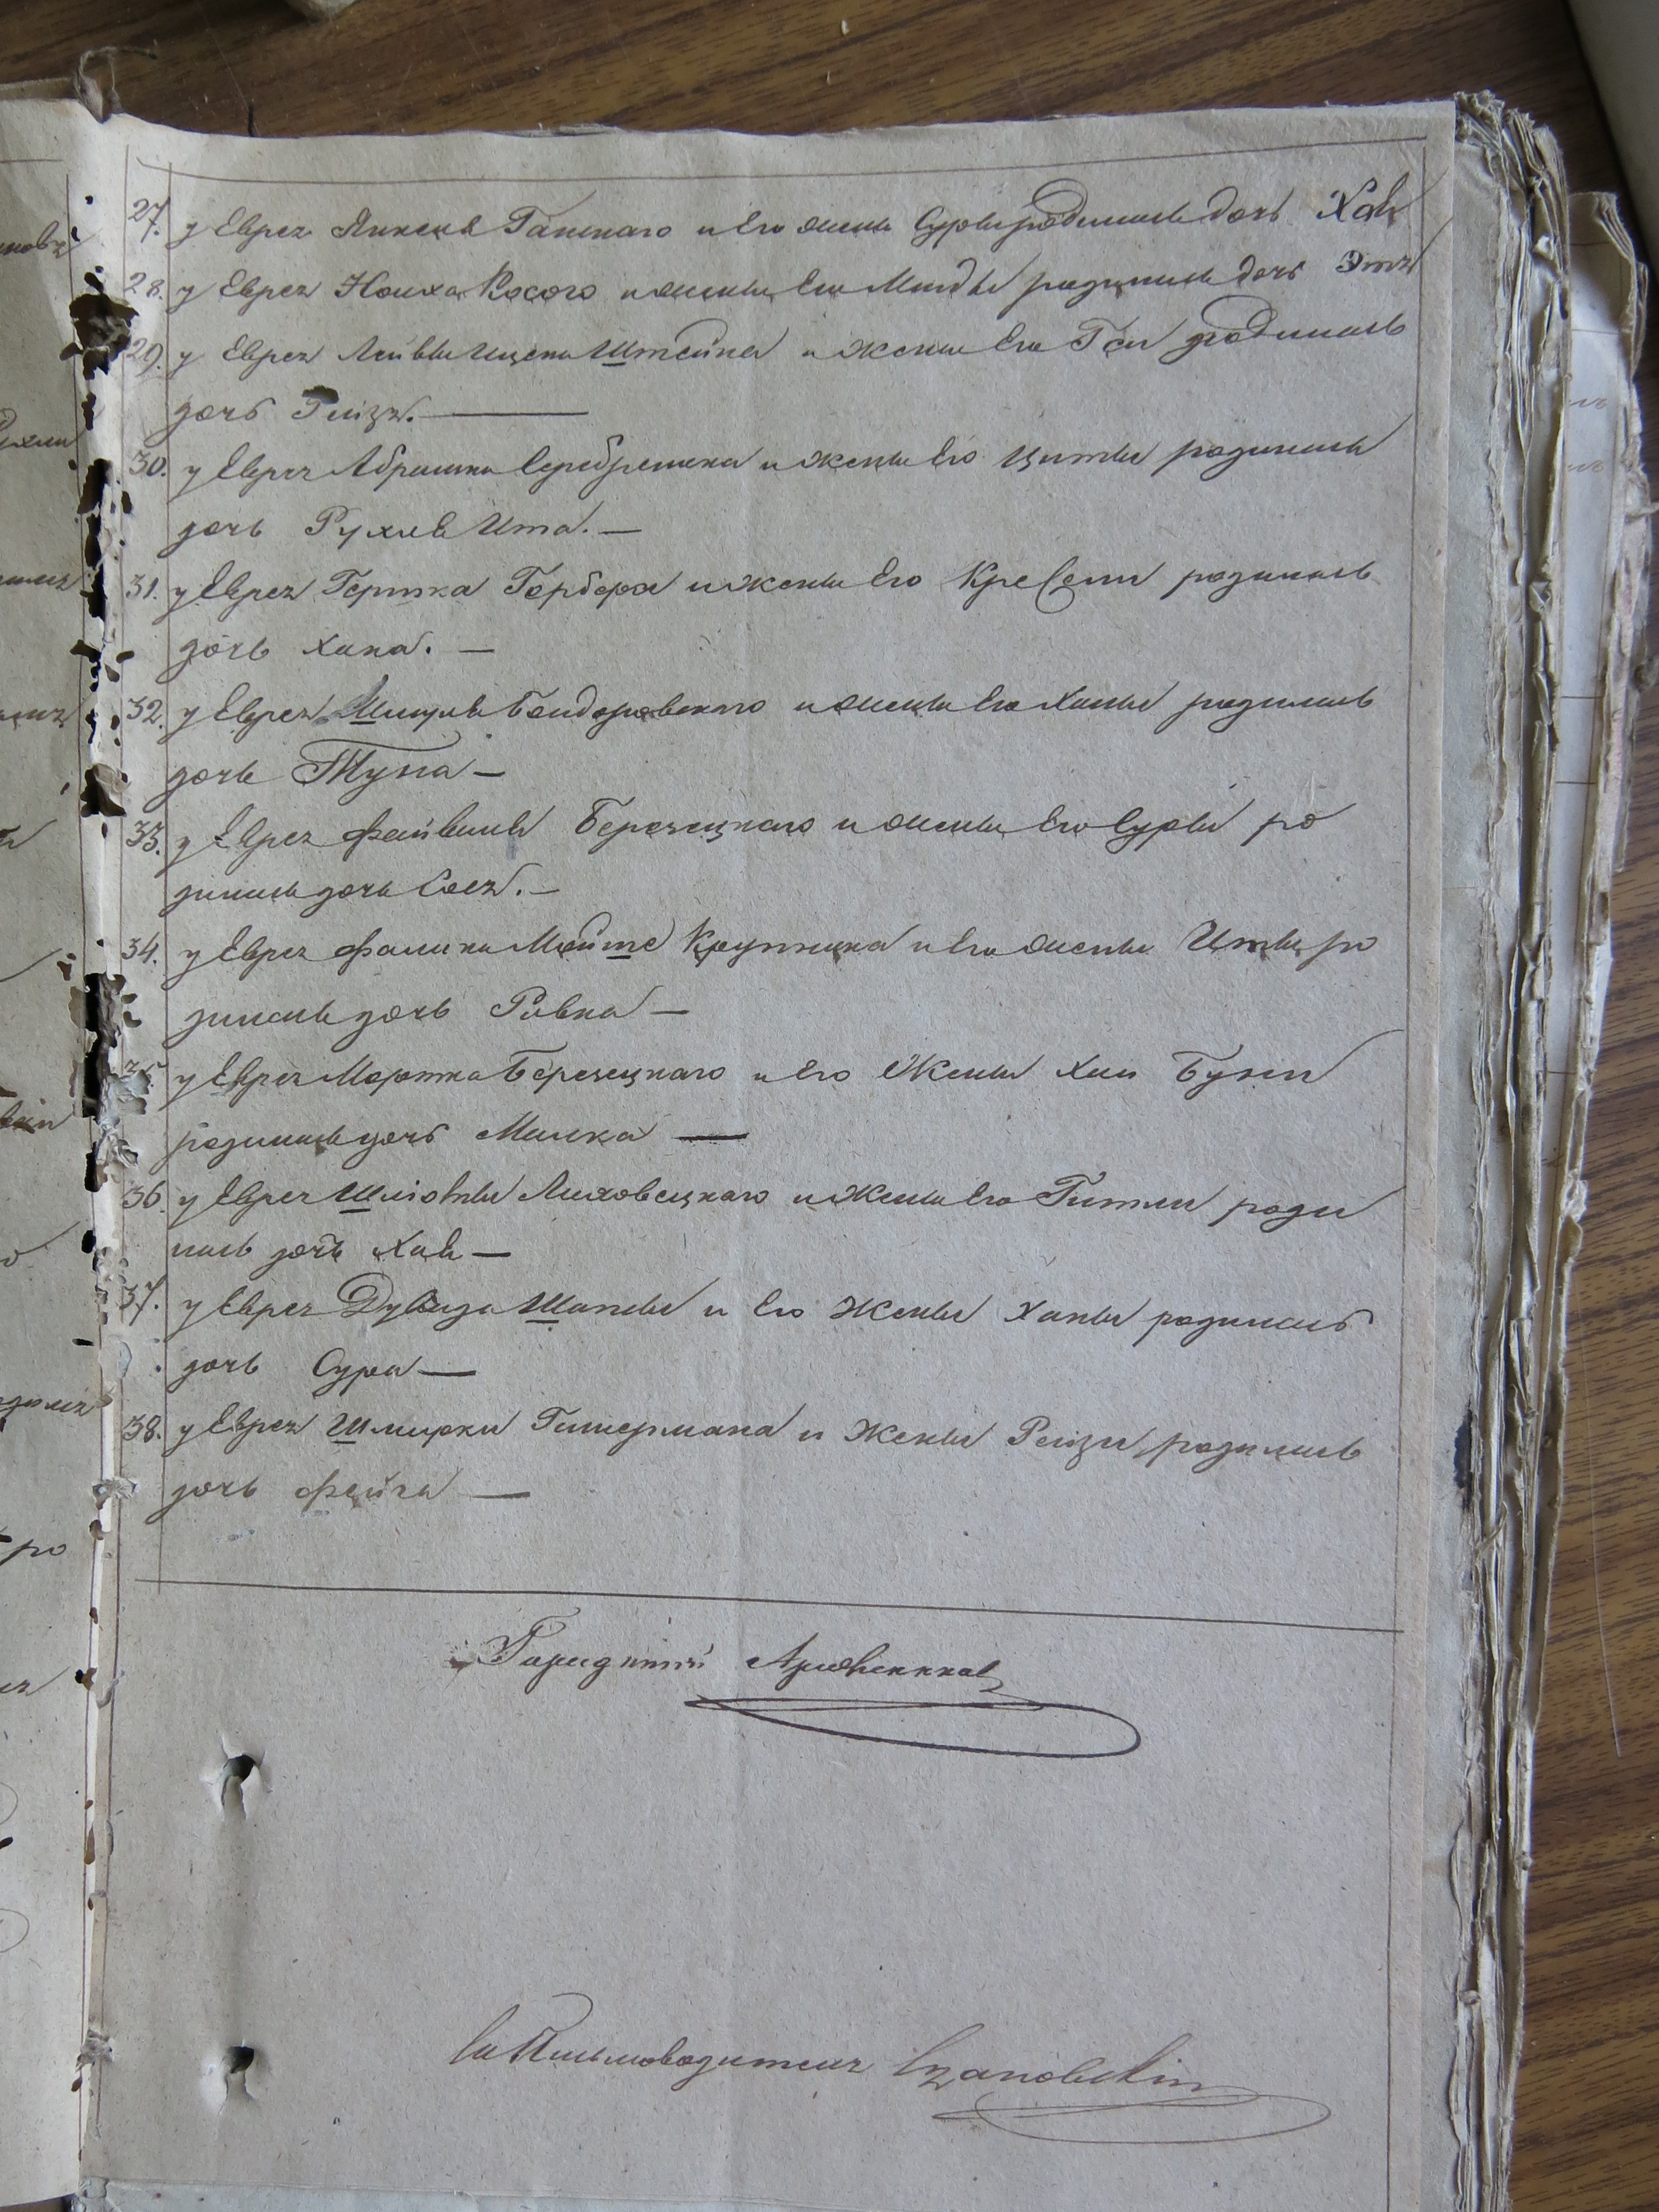 27. у Еврея Янкеля Ганскаго и Его жены Суры родилась дочь Хая
28. у Еврея Ноиха Косого и жены Его Минды родилась дочь Этя
29. у Еврея Лейвы Ицека Штейна и жены Его Геи родилась
дочь Рейзя.
30. у Еврея Абрамка Серебреника и жены Его Цитты родилась
дочь Рухля Ита.
31. у Еврея Гершка Гербера и жены Его Крейсели родилась
дочь Хана.
32. у Еврея Бондаровского и жены Его Ханы родилась
дочь
33. у Еврея Файвиша Березецкаго и жены Его Суры ро
дилась дочь Сося.
34. у Еврея Мойше Крупника и Его жены Итты ро
дилась дочь Ривка
35. у Еврея Мортка Березецкаго и Его Жены Хаи Бузи
родилась дочь Малка
36. у Еврея Шліомы Лиховецкаго и Жены Его Гитли роди
лась дочь Хая
37. у Еврея Дувида Шапсы и Его Жены Ханы родилась
дочь Сура
38. у Еврея Шмирки Гитермана и Жены Рейзи родилась
дочь Фейга
Городничій
За Письмоводителя